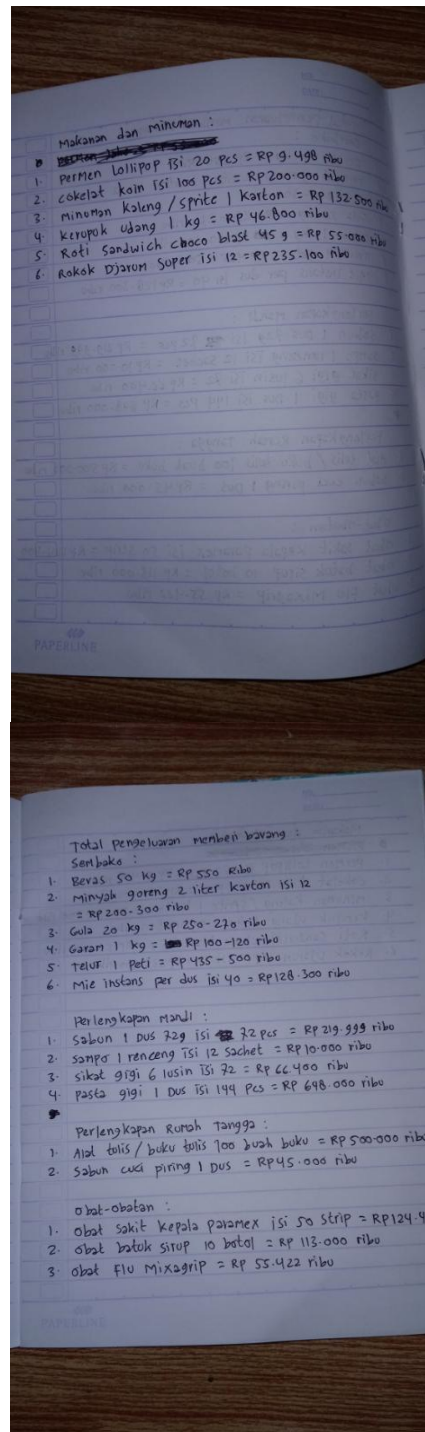 Makanan dan Minuman :
1. Permen Lollipop Isi 20 Pcs = Rp 9.498 ribu
2. cokelat koin isi 100 pcs = Rp 200.000 ribu
3. minuman kaleng / sprite 1 karton = Rp 132.500 ribu
4. kerupok udang 1 kg = Rp 46.800 ribu
5. Roti Sandwich choco blast 45 g = Rp 55.000 ribu
6. Rokok Djarum Super isi 12 = RP235.100 ribu
PAPERLINE
Total Pengeluaran memberi barang :
Sembako :
1. Beras 50 kg = Rp 550 Ribo
2. Minyak goreng 2 liter karton isi 12
= Rp 200-300 ribu
3. Gula 20 kg = Rp 250-270 ribu
4. Garam 1 kg = Rp 100-120 ribu
5. Telur 1 Peti = Rp 435 - 500 ribu
6. Mie instans per dus isi 40 = Rp 128.300 ribu
Perlengkapan Mandi :
1. Sabun 1 Dus 72g isi 72 pcs = Rp 219.999 ribu
2. Sampo 1 renceng isi 12 sachet = Rp 10.000 ribu
3. Sikat gigi 6 lusin isi 72 = Rp 66.400 ribu
4. pasta gigi 1 Dus isi 144 Pcs = Rp 698.000 ribu
Perlengkapan Rumah Tangga :
1. Alat tulis / buku tulis 100 buah buku = Rp 500.000 ribu
2. Sabun cuci piring 1 Dus = RP45.000 ribu
obat-obatan :
1. obat sakit kepala paramex isi 50 strip = RP124.4
2. obat batuk sirup 10 botol = Rp 113.000 ribu
3. obat Flu Mixagrip = Rp 55.422 ribu
PAPERLINE